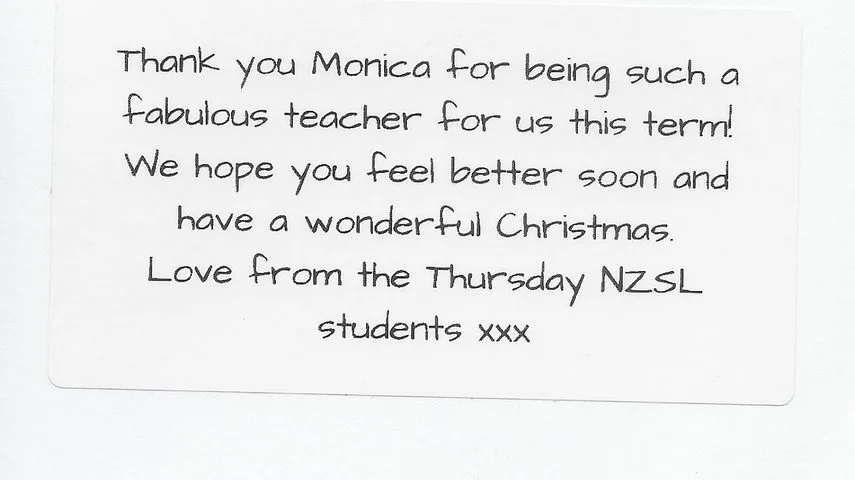 Thank you Monica for being such a
fabulous teacher for us this term!
We hope you feel better soon and
have a wonderful Christmas.
Love from the Thursday NZSL
students xxx